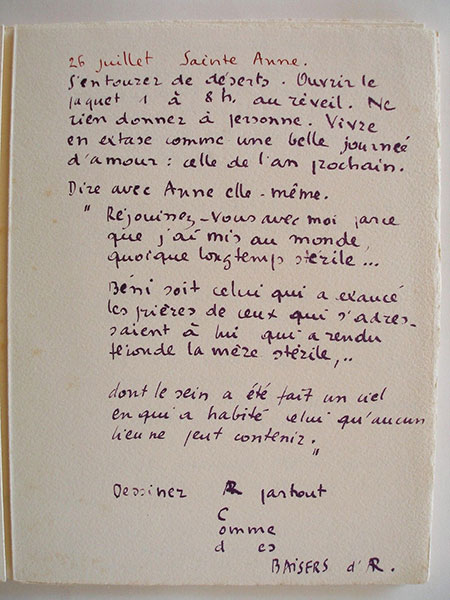 26 juillet Sainte Anne.
S'entourer de déserts. Ouvrir le
paquet 1 à 8 h. au réveil. Ne
rien donner à personne. Vivre
en extase comme une belle journée
d'amour : celle de l'an prochain.
Dire avec Anne elle-même.
" Réjouissez-vous avec moi parce
que j'ai mis au monde,
quoique longtemps stérile...
Béni soit celui qui a exaucé
les prières de ceux qui s'adres-
saient à lui qui a rendu
féconde la mère stérile,..
dont le sein a été fait un ciel
en qui a habité celui qu'aucun
lieu ne peut contenir. "
Dessinez AR partout
C
omme
d es
BAISERS d'AR.